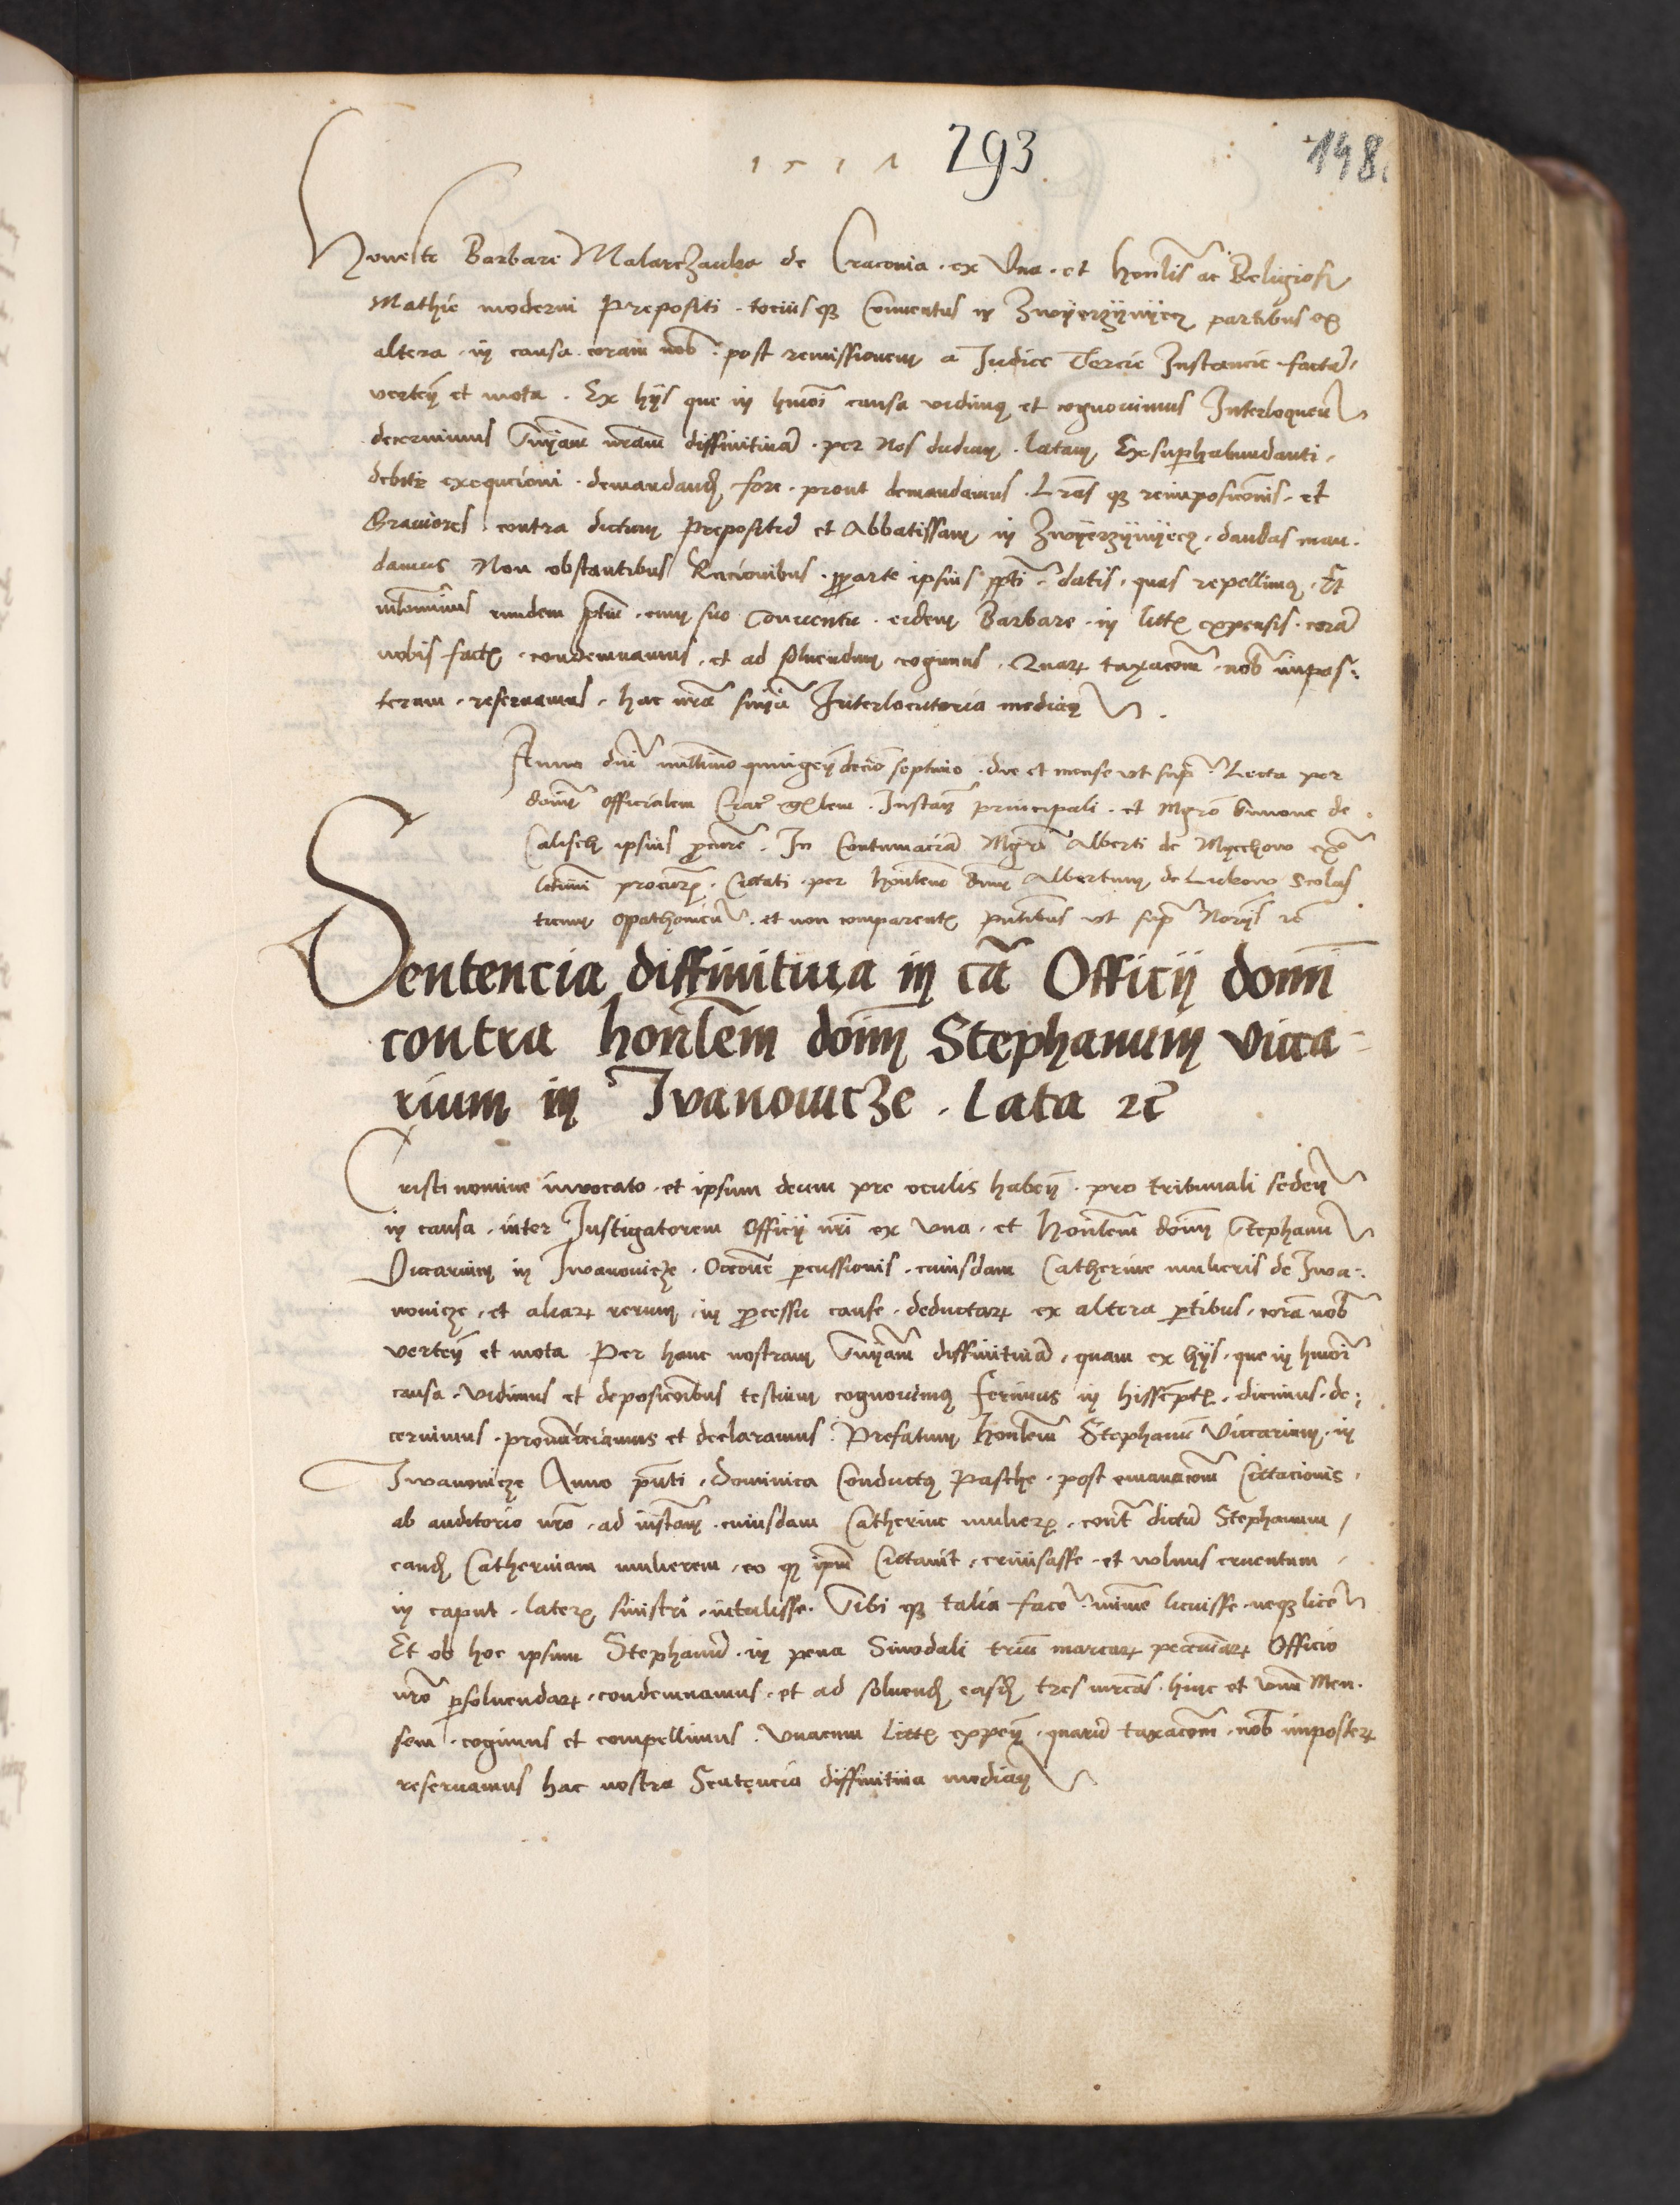 1511 293 148
Honeste Barbare Malarczanka de Cracouia . ex Vna . et honlis ac Religiosi
Mathie moderni Prepositi . tocius q3 Conuentus in Zwyerzynyecz partibus ex
altera . in causa . coram nob . post remissionem a Judice Tercie Instancie facta
verten et mota . Ex hys que in hmoi causa vidimus et cognouimus Interloquen
decernimus Sniam nram diffinitiua . per nos dudum . latam Exsuperhabundanti
debite exequcioni . demandand fore . prout demandamus . Lras q3 reimposicionis . et
Grauiores . contra dictum Prepositu et Abbatissam in Zwyerzynyecz . dandas man-
damus Non obstantibus Racionibus . pparte ipsius ppti . datis . quas repellimus . Et
nichominus eundem pptm . cum suo Conuentu . eidem Barbare . in littis expensis . cora
nobis factis . condemnamus . et ad soluendum cogimus . Quar taxacom . nob impos-
terum . reseruamus . hac nra snia Interlocutoria median
Anno dni millimo quingen decio septimo . die et mense vt supra . Lecta per
dominu Officialem Crac glem . Instan principali . et Mgro Simone de
Calisch ipsius procure . In Contumacia Mgri Alberti de Myechow
procuris . Cittati . per honlem dnm Albertum de Lukow Scolas
ticum Opathouien . et non comparentis pntibus vt supra Noriis rc
Sentencia diffinitiua in ca Officij domi
contra honlem doim Stephanum Vicca-
rium in Jvanowicze . Lata rc
Cristi nomine inuocato . et ipsum deum pre oculis haben . pro tribunali seden
in causa . inter Instigatorem Officij nri ex Vna . et Honlem doim Stephanu
Viccarium in Iwanouicze . Occone percussionis . cuiusdam Catherine mulieris de Iwa-
nouicze . et aliar rerum . in processu cause . deductar ex altera ptibus . cora nob
verten et mota . Per hanc nostram Sniam diffinitiua . quam ex hys . que in hmoi
causa . vidimus et deposicoibus testium cognouimus ferimus in hisscriptis . dicimus . de-
cernimus . pronunciamus et declaramus . Prefatum honlem Stephanu Viccarium . in
Iwanouicze Anno pnti . Dominica Conductus Pasche . post emanacom Cittacionis .
ab auditorio nro . ad instam . cuiusdam Catherine mulieris . cont dictu Stephanum
eand Catherinam mulierem . eo q ipm Cittauit . et volnus cruentum
in caput . lateris sinistri . intulisse . Sibi q3 talia face . minime licuisse . neq3 lice
Et ob hoc ipsum Stephanu . in pena Sinodali triu marcar pecuniar Officio
nro psoluendar . condemnamus . et ad soluend easd tres mrcas . hinc et vnu Men-
sem . cogimus et compellimus . Vnacum littis expen . quaru taxacom . nob imposter
reseruamus hac nostra Sentencia diffinitiua median